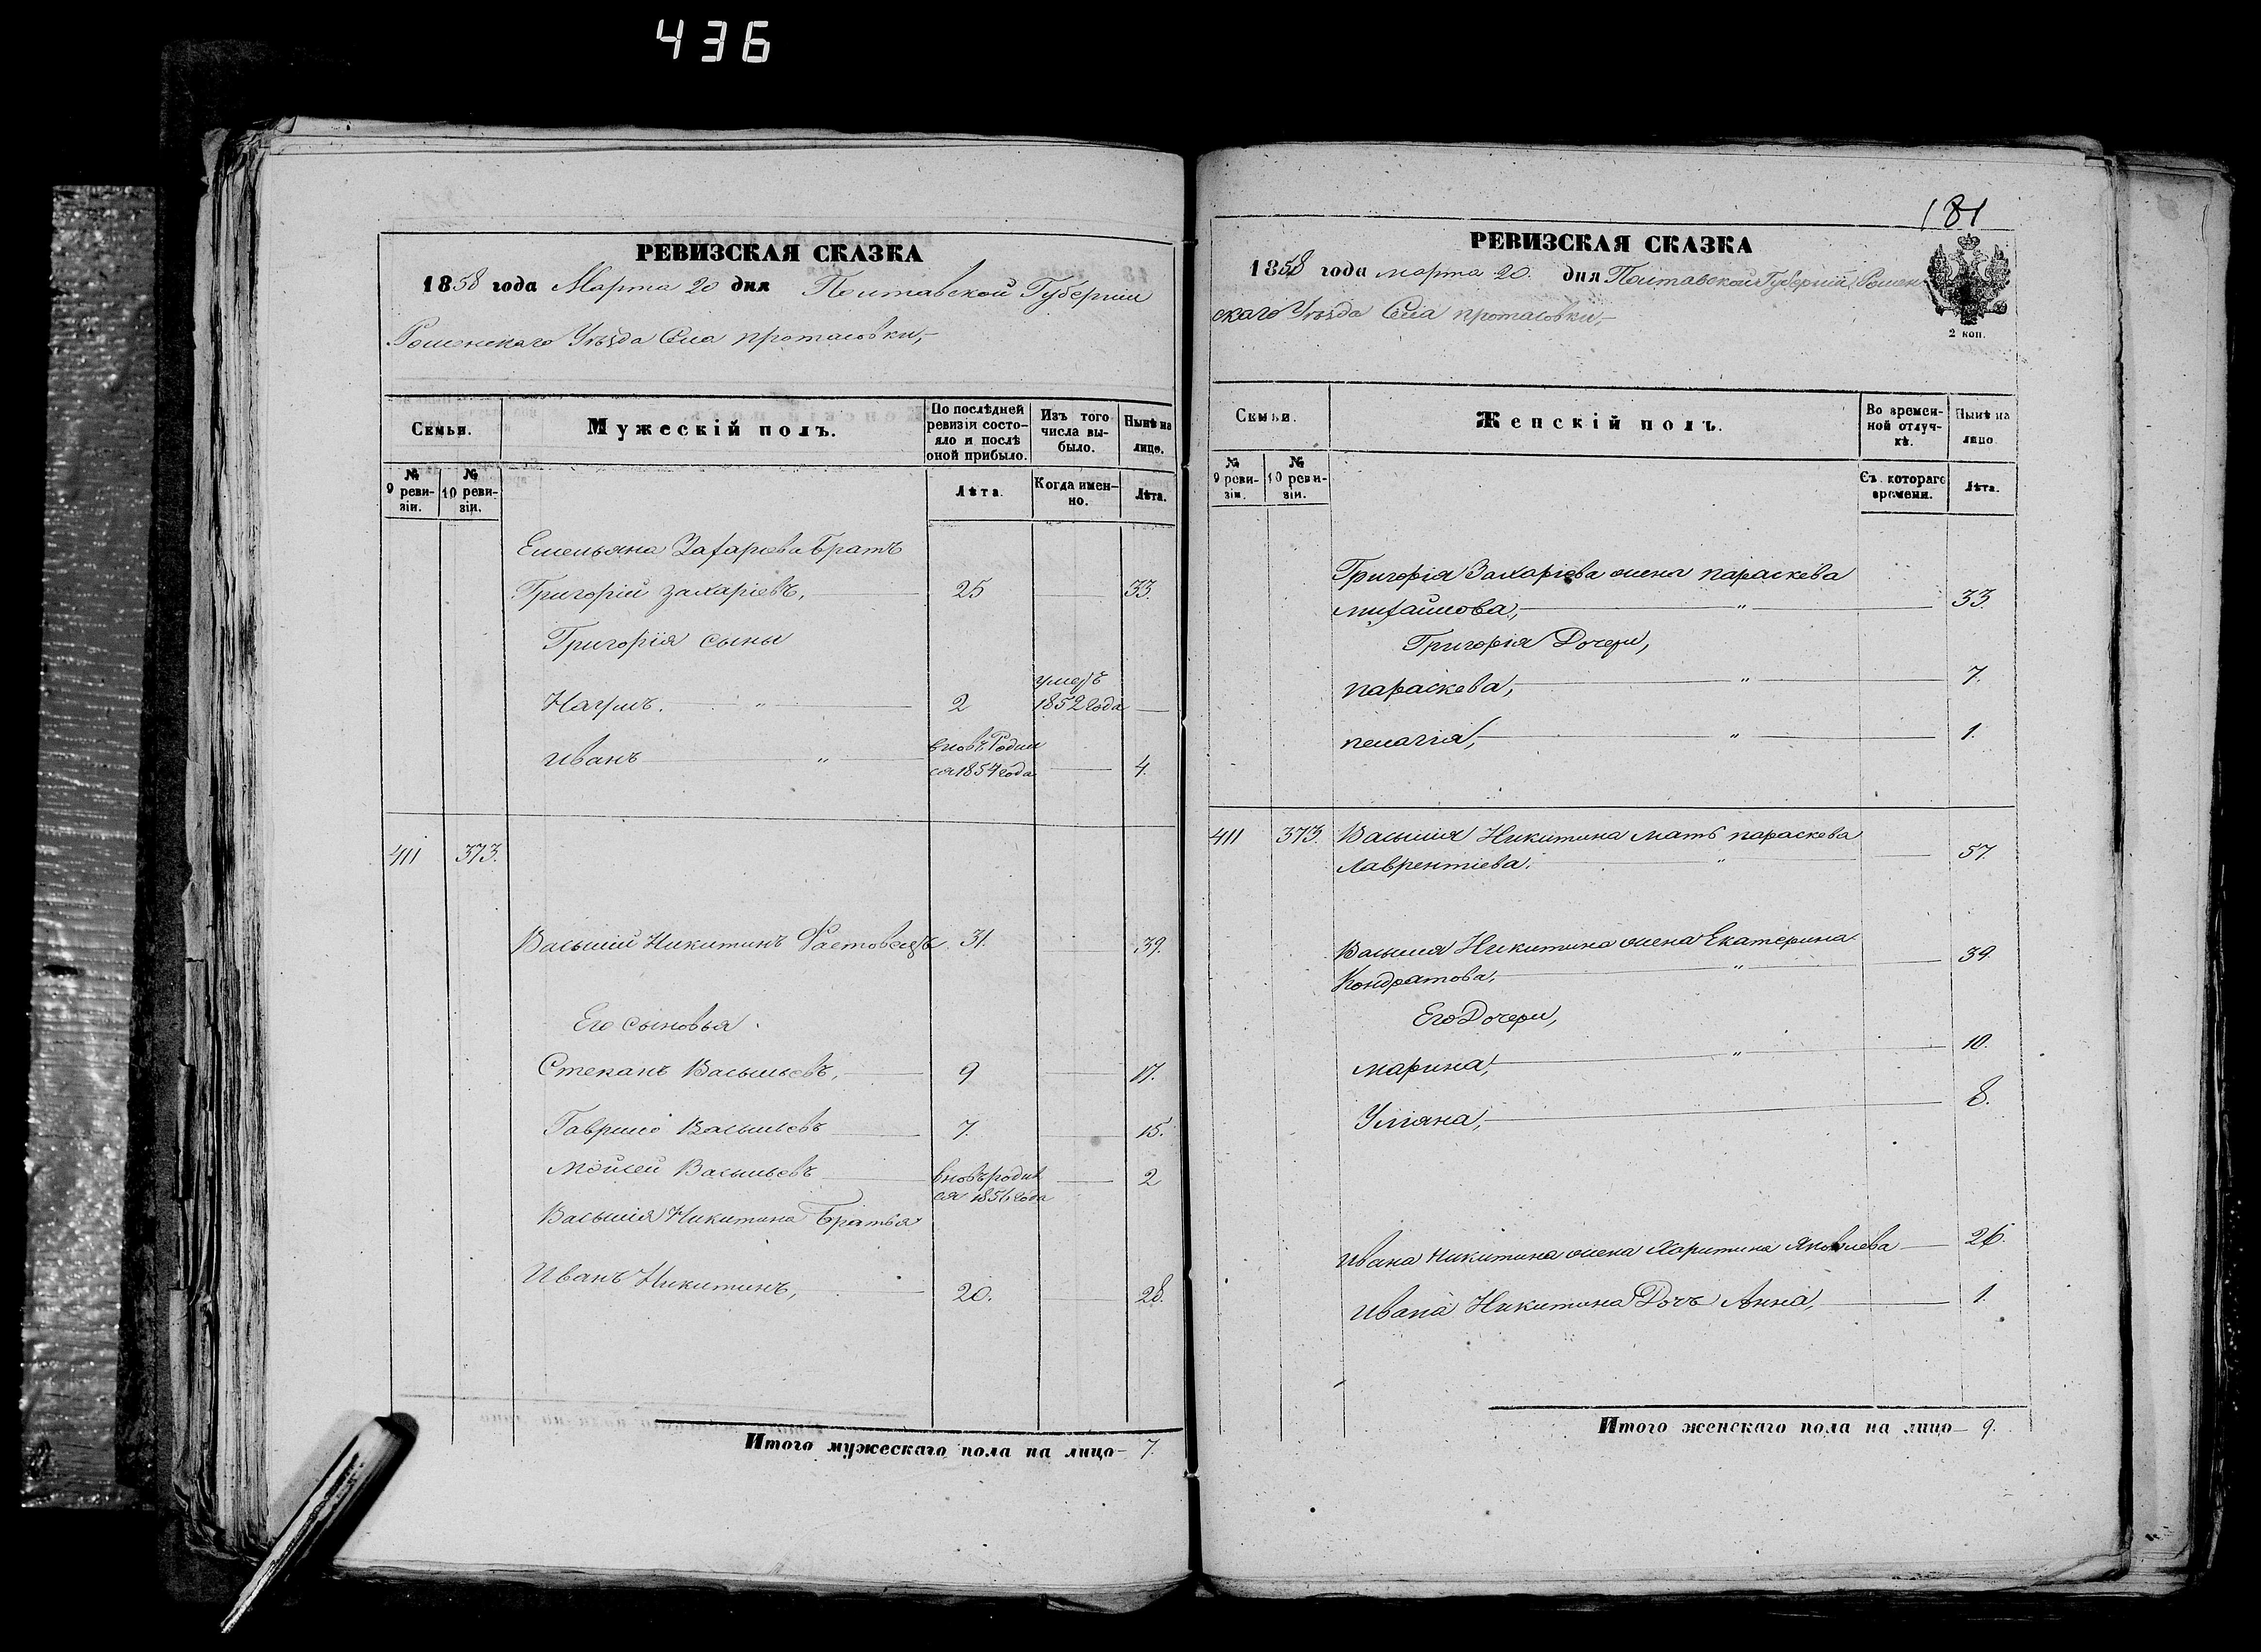 436
РЕВИЗСКАЯ СКАЗКА
1858 года Марта 20 дня Полтавской Губернии
Роменскаго Уѣзда Села протасовки,
Семьи.
Мужескій полъ.
По послѣдней ревизіи состояло и послѣ оной прибыло.
Изъ того числа выбыло.
Нынѣ на лицо.
№ 9 ревизіи.
№ 10 ревизіи.
Лѣта.
Когда именно.
Лѣта.
Емельяна Захариева Братъ
Григорій Захаріевъ, 25 33.
Григорія сыны
Наумъ. " 2 умеръ 1852 года
Иванъ " вновь Родилсۥя 1854 года 4.
411 373.
Василий Никитинъ 31. 39.
Его сыновья.
Степанъ Васильевъ, 9 17.
Гаврило Васильевъ 7. 15.
Мойсей Васильевъ вновь родился 1856 года 2
Василия Никитина Братья
Иванъ Никитинъ, 20. 28.
Итого мужескаго пола на лицо 7.
181
РЕВИЗСКАЯ СКАЗКА
1858 года марта 20. дня Полтавской Губерніи Роменскаго Уѣзда Села протасовки,
2 коп.
Семьи.
Женскій полъ.
Во временной отлучкѣ.
Нынѣ на лицо
№ 9 ревизіи.
№ 10 ревизіи.
Съ котораго времени.
Лѣта.
Григорія Захаріева жена параскева
михайлова, " 33.
Григорія Дочери,
параскева, " 7.
пелагія, " 1.
411 373. Василия Никитина мать параскева
Лаврентіева. " 57.
Василия Никитина жена Екатерина
Кондратова, " 39.
Его Дочери,
марина, " 10.
Уліяна, 8.
Ивана Никитина жена Харитина Яковлева 26
Ивана Никитина Дочь Анна, 1.
Итого женскаго пола на лицо 9.